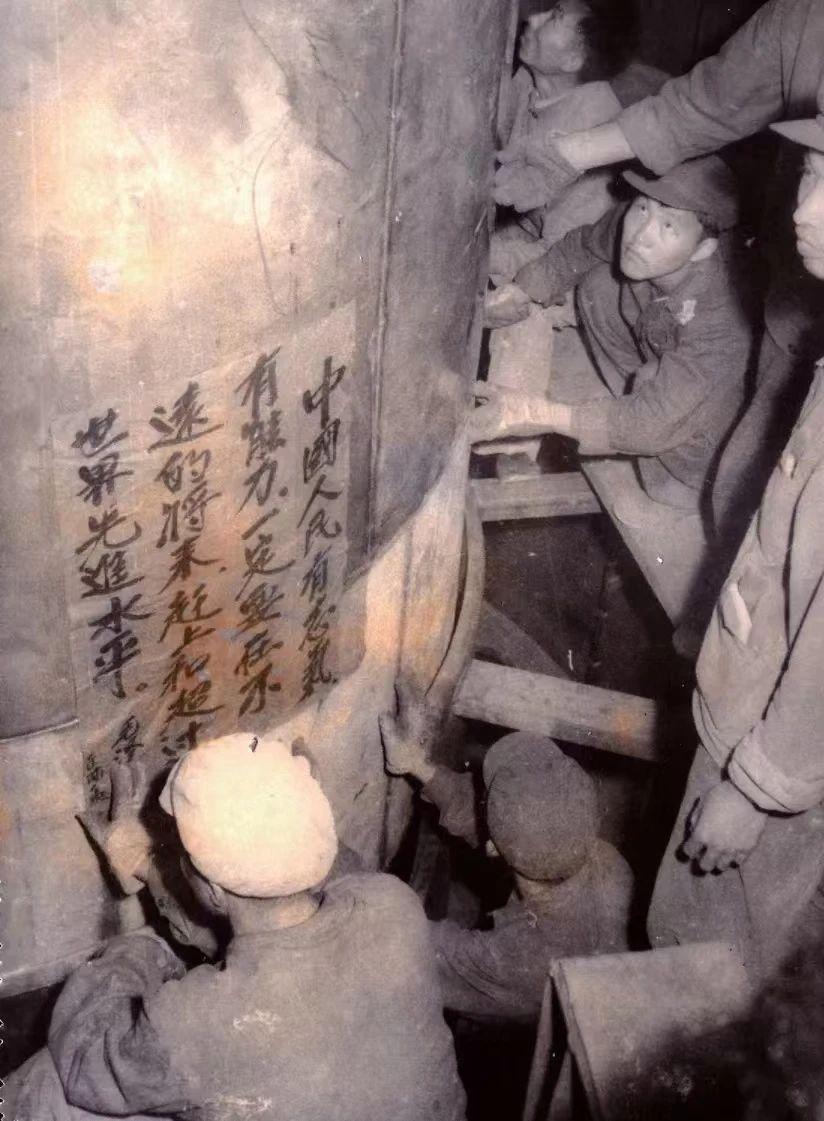 中國人民有志氣，
有能力，一定要在不
遠的将来，赶上和超过
世界先進水平。